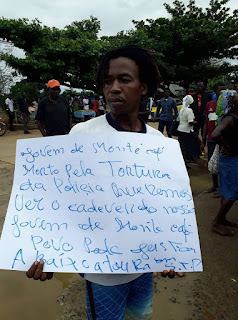 Jovem de Monte
Morto pela Tortura
da Policia Queremos
Ver o cadever do nosso
Jovem de Monte
Povo Pede Justi
A Baixo a tortura